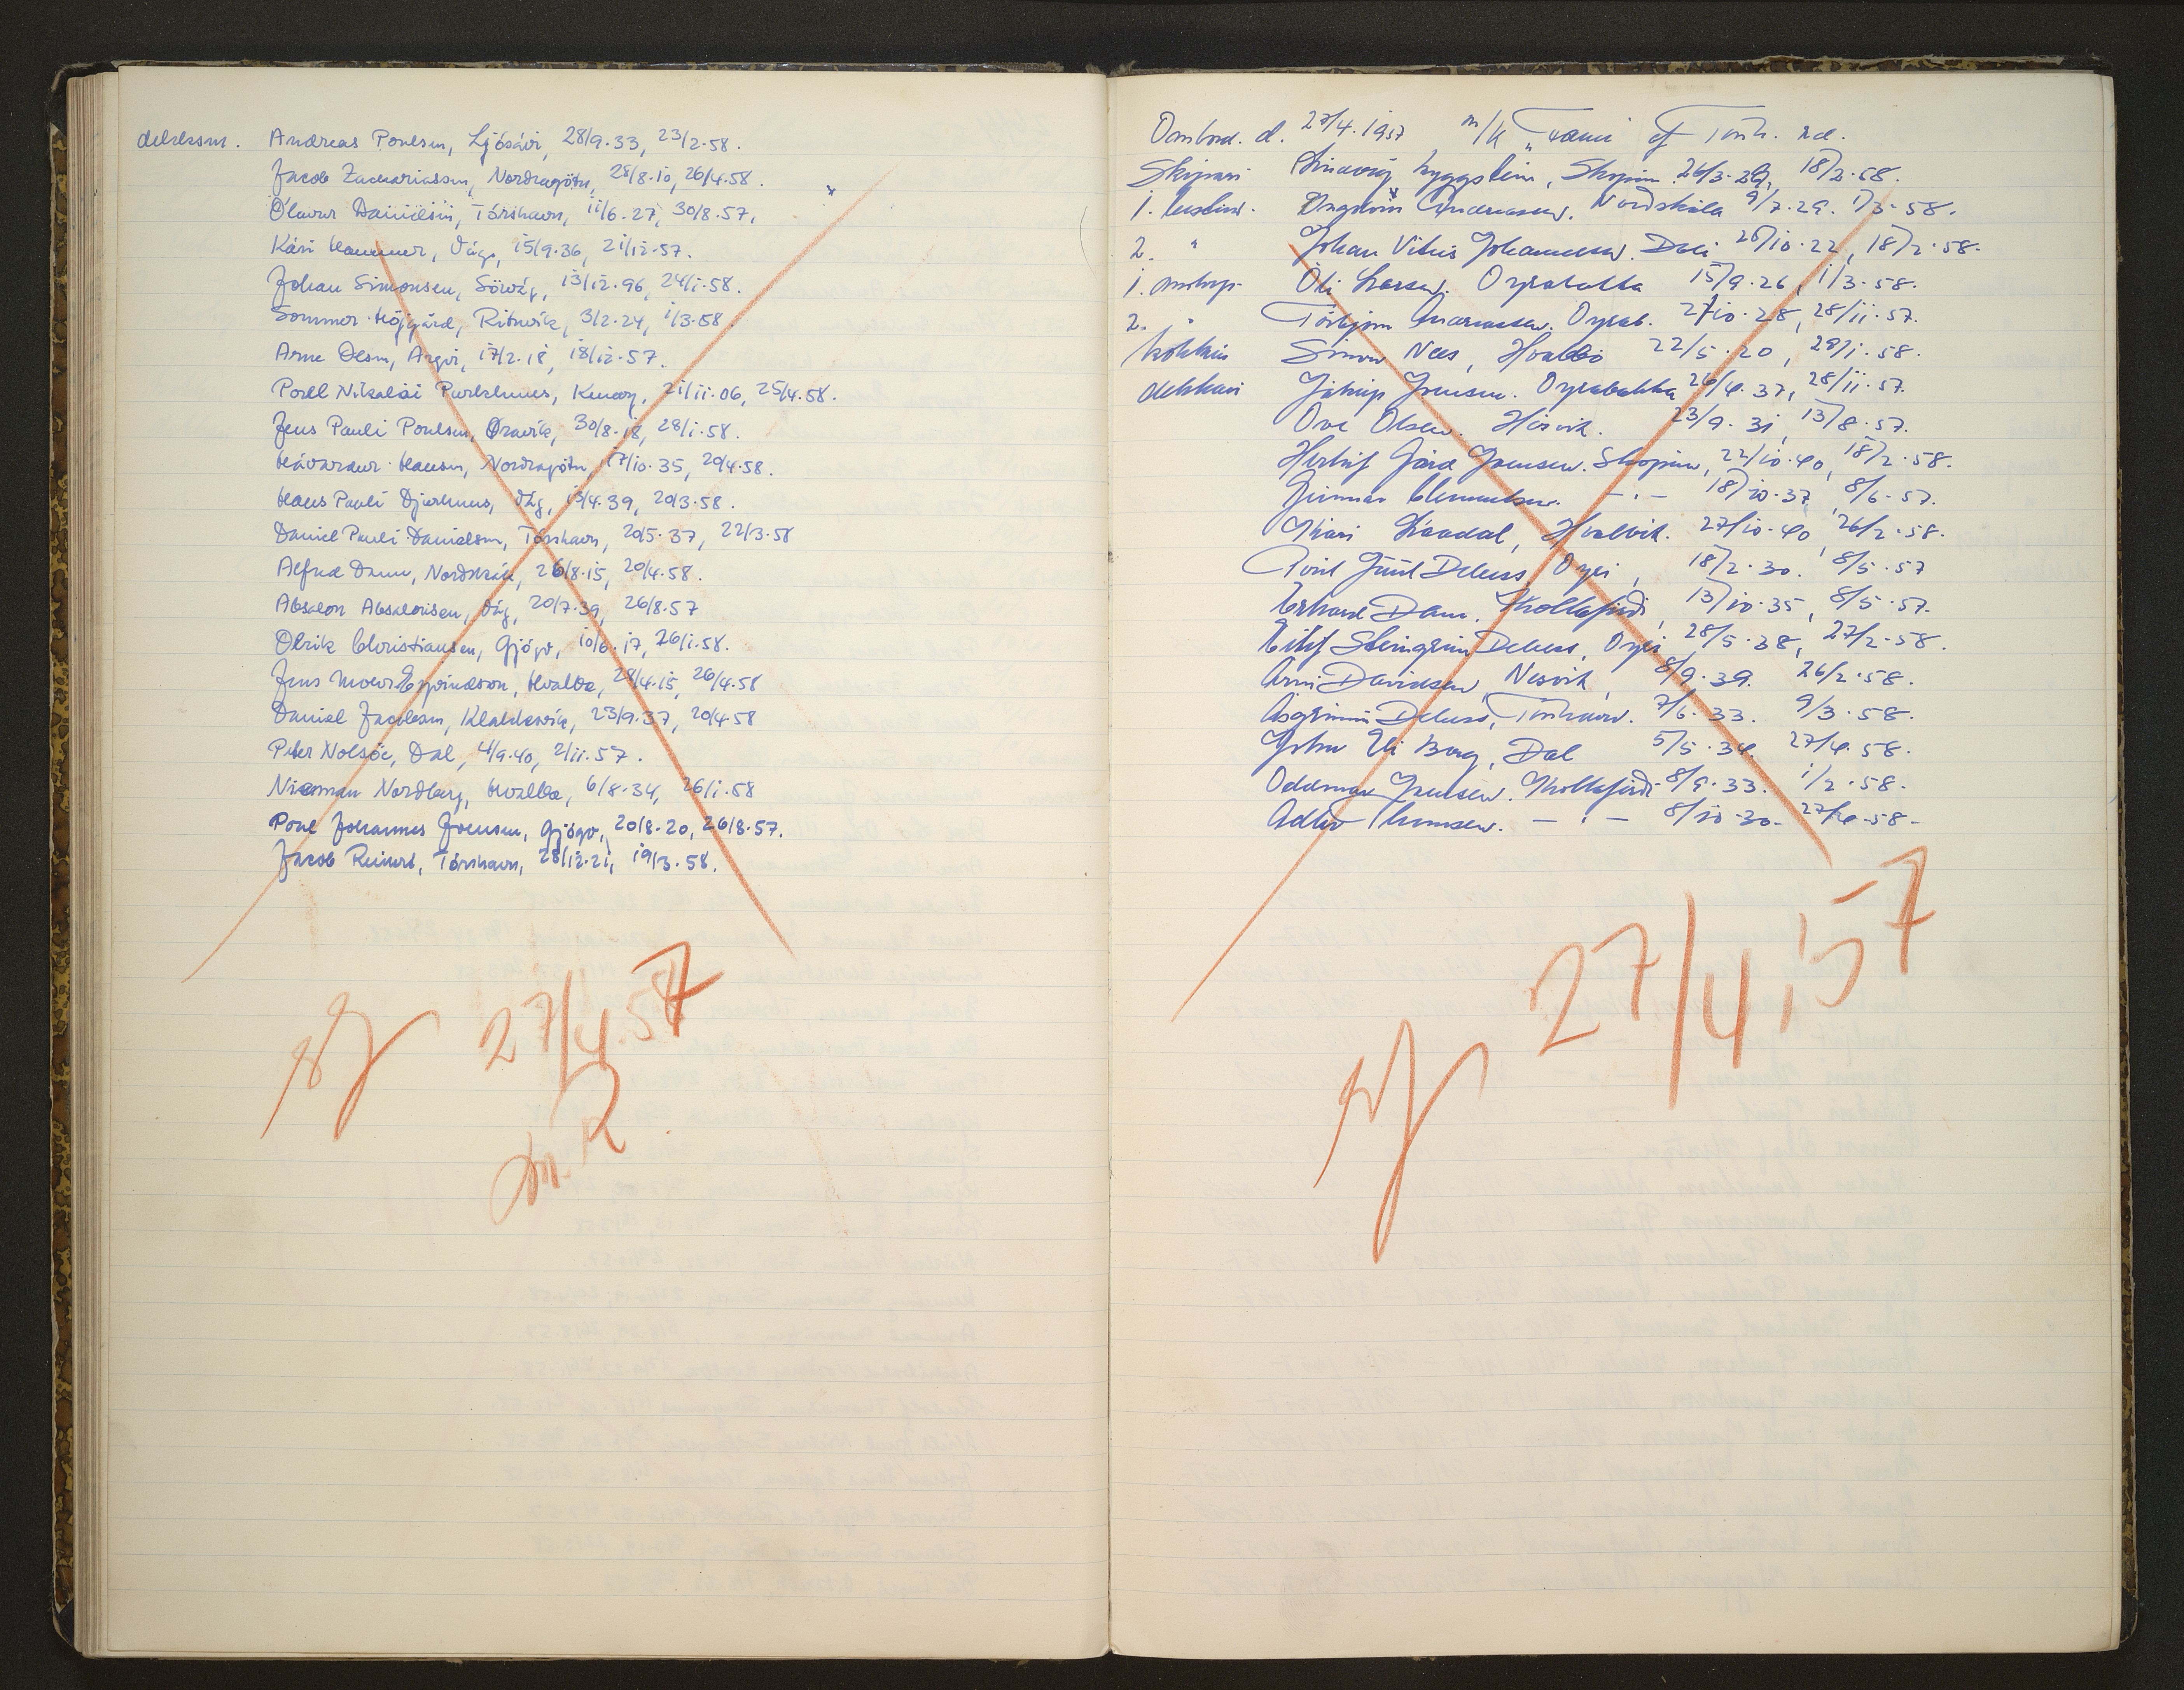 dekksm. Andreas Poulsen, Ljósáir, 28/9.33, 23/2.58.
Jacob Zachariassen, Nordragøtu, 28/8.10, 26/4.58.
Ólavur Danielsen, Tórshavn, 11/6.27, 30/8.57.
Kári Hammer, Vágs, 15/9.36, 21/12.57.
Johan Simonsen, Sörvág, 13/12.96, 24/1.58.
Sommer Højgård, Rituvík, 3/2.24, 1/3.58.
Arne Olsen, Argir, 17/2.18, 18/12.57.
Poul Nikolai Purkhus, Kunoy, 21/11.06, 25/4.58.
Jens Pauli Poulsen, Øravík, 30/8.18, 28/1.58.
Hávardur Hansen, Nordragøtu, 17/10.35, 20/4.58.
Hans Pauli Djurhuus, Vág, 13/4.39, 20/3.58.
Daniel Pauli Danielsen, Tórshavn, 20/5.37, 22/3.58
Alfred Dam, Nordskála, 26/8.15, 20/4.58.
Absalon Absalonsen, Vág, 20/7.39, 26/8.57
Olrik Christiansen, Gjógv, 10/6.17, 26/1.58.
Jens Eyvindson, Hvalba, 28/4.15, 26/4.58
Daniel Jacobsen, Klakksvík, 23/9.37, 20/4.58
Peter Nolsöe, Dal, 4/9.40, 2/11.57.
Nordberg, Hvalba, 6/8.34, 26/1.58
Poul Johannes Joensen, Gjógv, 20/8.20, 26/8.57.
Jacob Reinert, Tórshavn, 28/12.21, 19/3.58.
27/4.57
Ombord. d. 27/4.1957 m/k af Tórsh.
Skipari Hyggstein, Skopun 26/3.29, 18/2.58.
1. Andreasen. Nordskála 9/7.29. 1/3.58.
2. " Johan Vitus Johannesen. Dali 28/10.22, 18/2.58.
1. Óli Larsen. Oyrabakka 15/9.26, 1/3.58.
2. " Torbjørn Oyrab. 27/10.28, 28/11.57.
kokkur Simon Nees, Hvalbø 22/5.20, 28/1.58.
dekkari Jákup Joensen. Oyrabakka 26/4.37, 28/11.57.
Ove Olsen. Hósvík. 23/9.31, 13/8.57.
Herluf Gård Joensen. Skopun, 22/10.40, 18/2.58.
Gunnar Clementsen. — " — 18/10.37, 8/6.57.
Hvalvík. 27/10.40, 26/2.58.
Debess, Oyri, 18/2.30. 8/5.57
Erhard Dam. Kollafirdi, 13/10.35, 8/5.57.
Eilif Steingrim Debess, Oyri 28/5.38, 27/2.58.
Arni Davidsen, Nesvík, 8/9.39. 26/2.58.
Asgrimur Debess, Tórshavn. 7/6.33. 9/3.58.
John Eli Borg, Dal 5/5.34. 27/4.58.
Oddmar Joensen. Kollafirdi 8/9.33. 1/2.58.
Thomsen. — " — 8/10.30. 27/4.58.
27/4.57